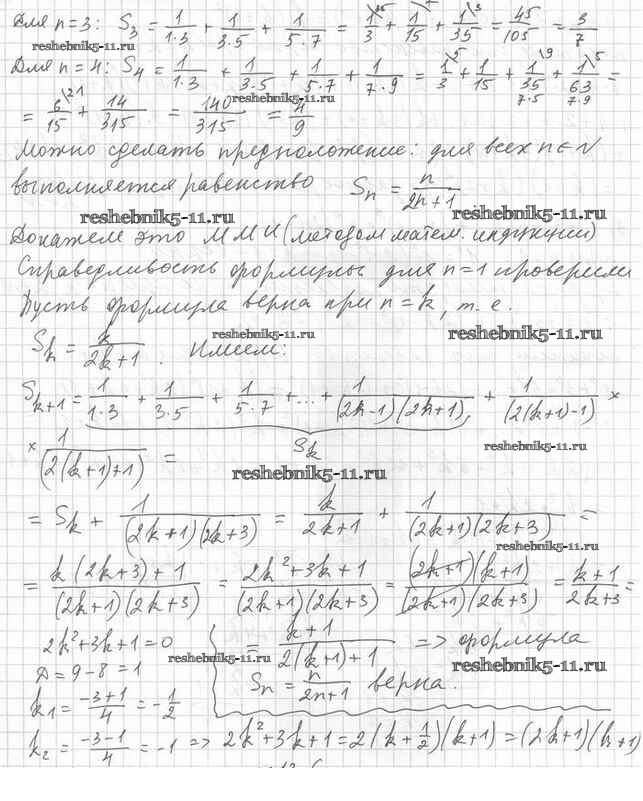 Для n=3: S₃ = 1/(1·3) + 1/(3·5) + 1/(5·7) = 1/3 + 1/15 + 1/35 = 45/105 = 3/7
reshebnik5-11.ru
Для n=4: S₄ = 1/(1·3) + 1/(3·5) + 1/(5·7) + 1/(7·9) = 1/3\5 + 1/15 + 1/35\9 + 1/63\5 =
7·5 7·9
= 6/15\21 + 14/315 = 140/315 = 4/9
reshebnik5-11.ru
Можно сделать предположение: для всех n∈N
выполняется равенство Sₙ = n/(2n+1)
reshebnik5-11.ru reshebnik5-11.ru
Докажем это ММИ (методом матем. индукции)
Справедливость формулы для n=1 проверили
Пусть формула верна при n=k, т.е.
reshebnik5-11.ru reshebnik5-11.ru
Sₖ = k/(2k+1). Имеем:
Sₖ₊₁ = 1/(1·3) + 1/(3·5) + 1/(5·7) + ... + 1/((2k-1)(2k+1)) + 1/(2(k+1)-1) ×
Sₖ
reshebnik5-11.ru
× 1/(2(k+1)+1) =
reshebnik5-11.ru
= Sₖ + 1/((2k+1)(2k+3)) = k/(2k+1) + 1/((2k+1)(2k+3)) =
reshebnik5-11.ru
= (k(2k+3)+1)/((2k+1)(2k+3)) = (2k²+3k+1)/((2k+1)(2k+3)) = ((2k+1)(k+1))/((2k+1)(2k+3)) = (k+1)/(2k+3) =
= (k+1)/(2(k+1)+1) => формула
reshebnik5-11.ru reshebnik5-11.ru
Sₙ = n/(2n+1) верна.
2k²+3k+1=0
D=9-8=1
k₁ = (-3+1)/4 = -1/2
k₂ = (-3-1)/4 = -1 => 2k²+3k+1=2(k+1/2)(k+1)=(2k+1)(k+1)